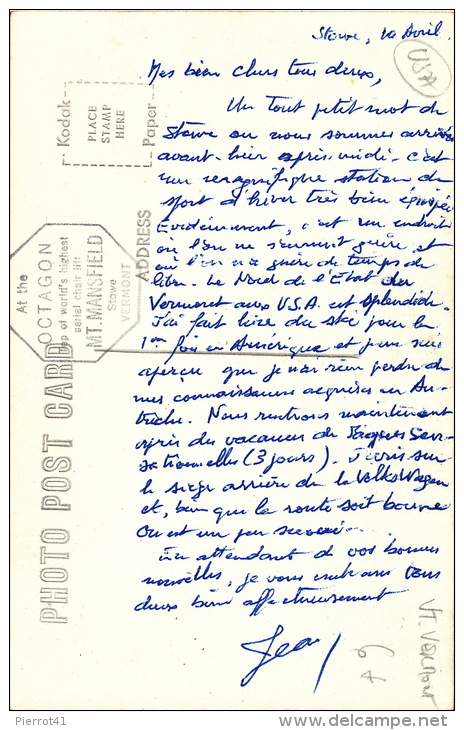 Stowe, 10 Avril.
Mes bien chers tous deux,
Un tout petit mot de
Stowe ou nous sommes arrivés
avant-hier après-midi - c'est
une magnifique station de
sport d'hiver très bien équipée
Évidemment, c'est un endroit
où l'on ne s'ennuit guère et
où l'on n'a guère de temps de
libre. Le Nord de l'État du
Vermont aux U.S.A. est splendide.
J'ai fait hier du ski pour la
1ère fois en Amérique et je me suis
aperçu que je n'ai rien perdu de
mes connaissances acquises en Au-
triche. Nous rentrons maintenant
après des vacances de Pâques sen-
sationnelles (3 jours). J'écris sur
le siège arrière de la VolksWagen
et, bien que la route soit bonne
on est un peu secoué.
En attendant de vos bonnes
nouvelles, je vous embrasse tous
deux bien affectueusement
Jean
USA
Kodak
PLACE
STAMP
HERE
Paper
ADDRESS
At the
OCTAGON
top of world's highest
aerial chair lift
MT. MANSFIELD
Stowe
VERMONT
PHOTO POST CARD
Pierrot41